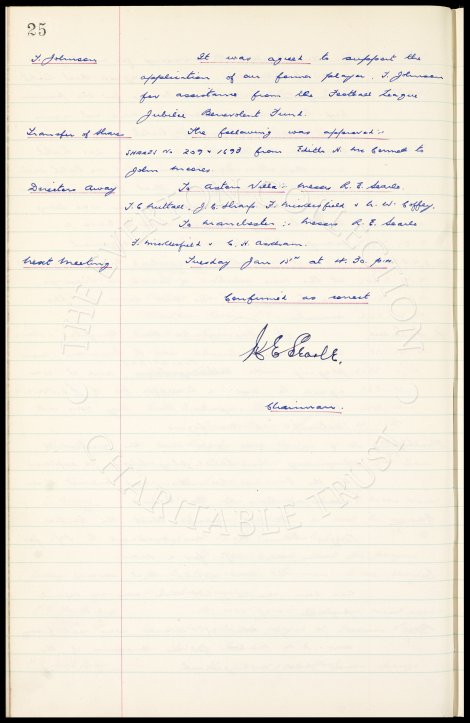 25
T. Johnson It was agreed to support the
application of our former player, T. Johnson
for assistance from the Football League
Jubilee Benevolent Fund.
Transfer of Share The following was approved:-
SHARES No 209 & 1693 from Edith H. to
John Moores.
Directors Away To Aston Villa:- Messrs R. E. Searle,
T. C. Nuttall, J. C. Sharp, F. Micklesfield & N. W. Coffey.
To Manchester:- Messrs R. E. Searle
F. Micklesfield & C. H. Askham.
Next Meeting Tuesday Jan 15th at 4.30. p.m.
Confirmed as correct
Searle.
Chairman.
THE EVERTON COLLECTION
CHARITABLE TRUST